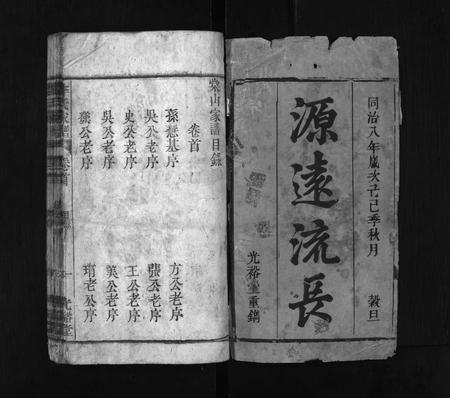 同治八年歲次己巳季秋月 穀旦
源遠流長
光裕堂重鐫
棠山家譜目錄
卷首
孫懋基序 方公老序
吳公老序 張公老序
史公老序 王公老序
吳公老序 吳公老序
孫公老序 瑁老公序
光裕堂